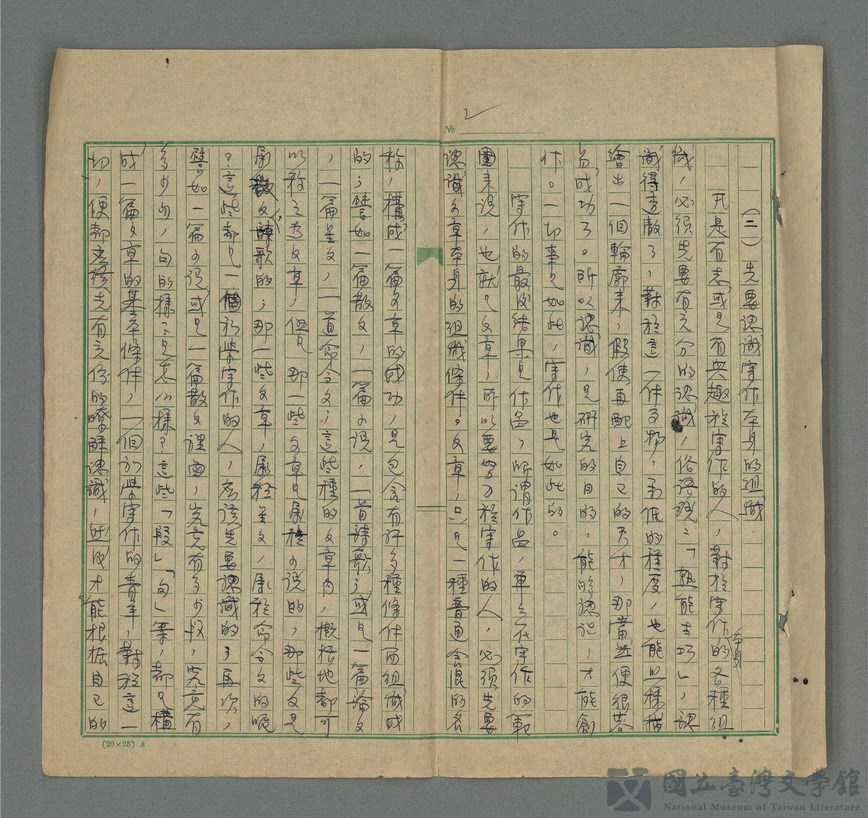 No 2
(二) 先要認識寫作本身的組織
凡是有志或是有興趣於寫作的人，對於寫作的各種組
本身
織，必須先要有充分的認識，俗語說：「熟能生巧」，認
識得透澈了，對於這一件事物，最低的程度，也能照樣描
繪出一個輪廓來，假使再配上自己的天才，那當然便很容
易成功了。所以認識，是研究的目的，能夠認識，才能創
作。一切事是如此，寫作也是如此的。
寫作的最後結果是作品，所謂作品，單是在寫作的範
圍來說，也就是文章，所以要學習於寫作的人，必須先要
認識文章本身的組織條件。文章，只是一種普通含混的名
稱，構成一篇文章的成功，是包含有許多種條件而組織成
的；譬如一篇散文，一篇小說，一首詩歌；或是一篇論文
，一篇呈文，一道命令文；這些種的文章內，概括地都可
以款之為文章，但是那一些文章是屬於小說的，那些文是
屬散文詩歌的；那一些文章，屬於呈文，屬於命令文的呢
？這些都是一個初學寫作的人，應該先要認識的；再次，
譬如一篇小說或是一篇散文裡面，究竟有多少段，究竟有
多少句，句的樣子是怎麼樣？這些「段」「句」等，都是構
成一篇文章的基本條件，一個初學寫作的青年，對於這一
切，便都應該先有充份的瞭解認識，然後才能根據自己的
(20×25) A
國立臺灣文學館
National Museum of Taiwan Literature